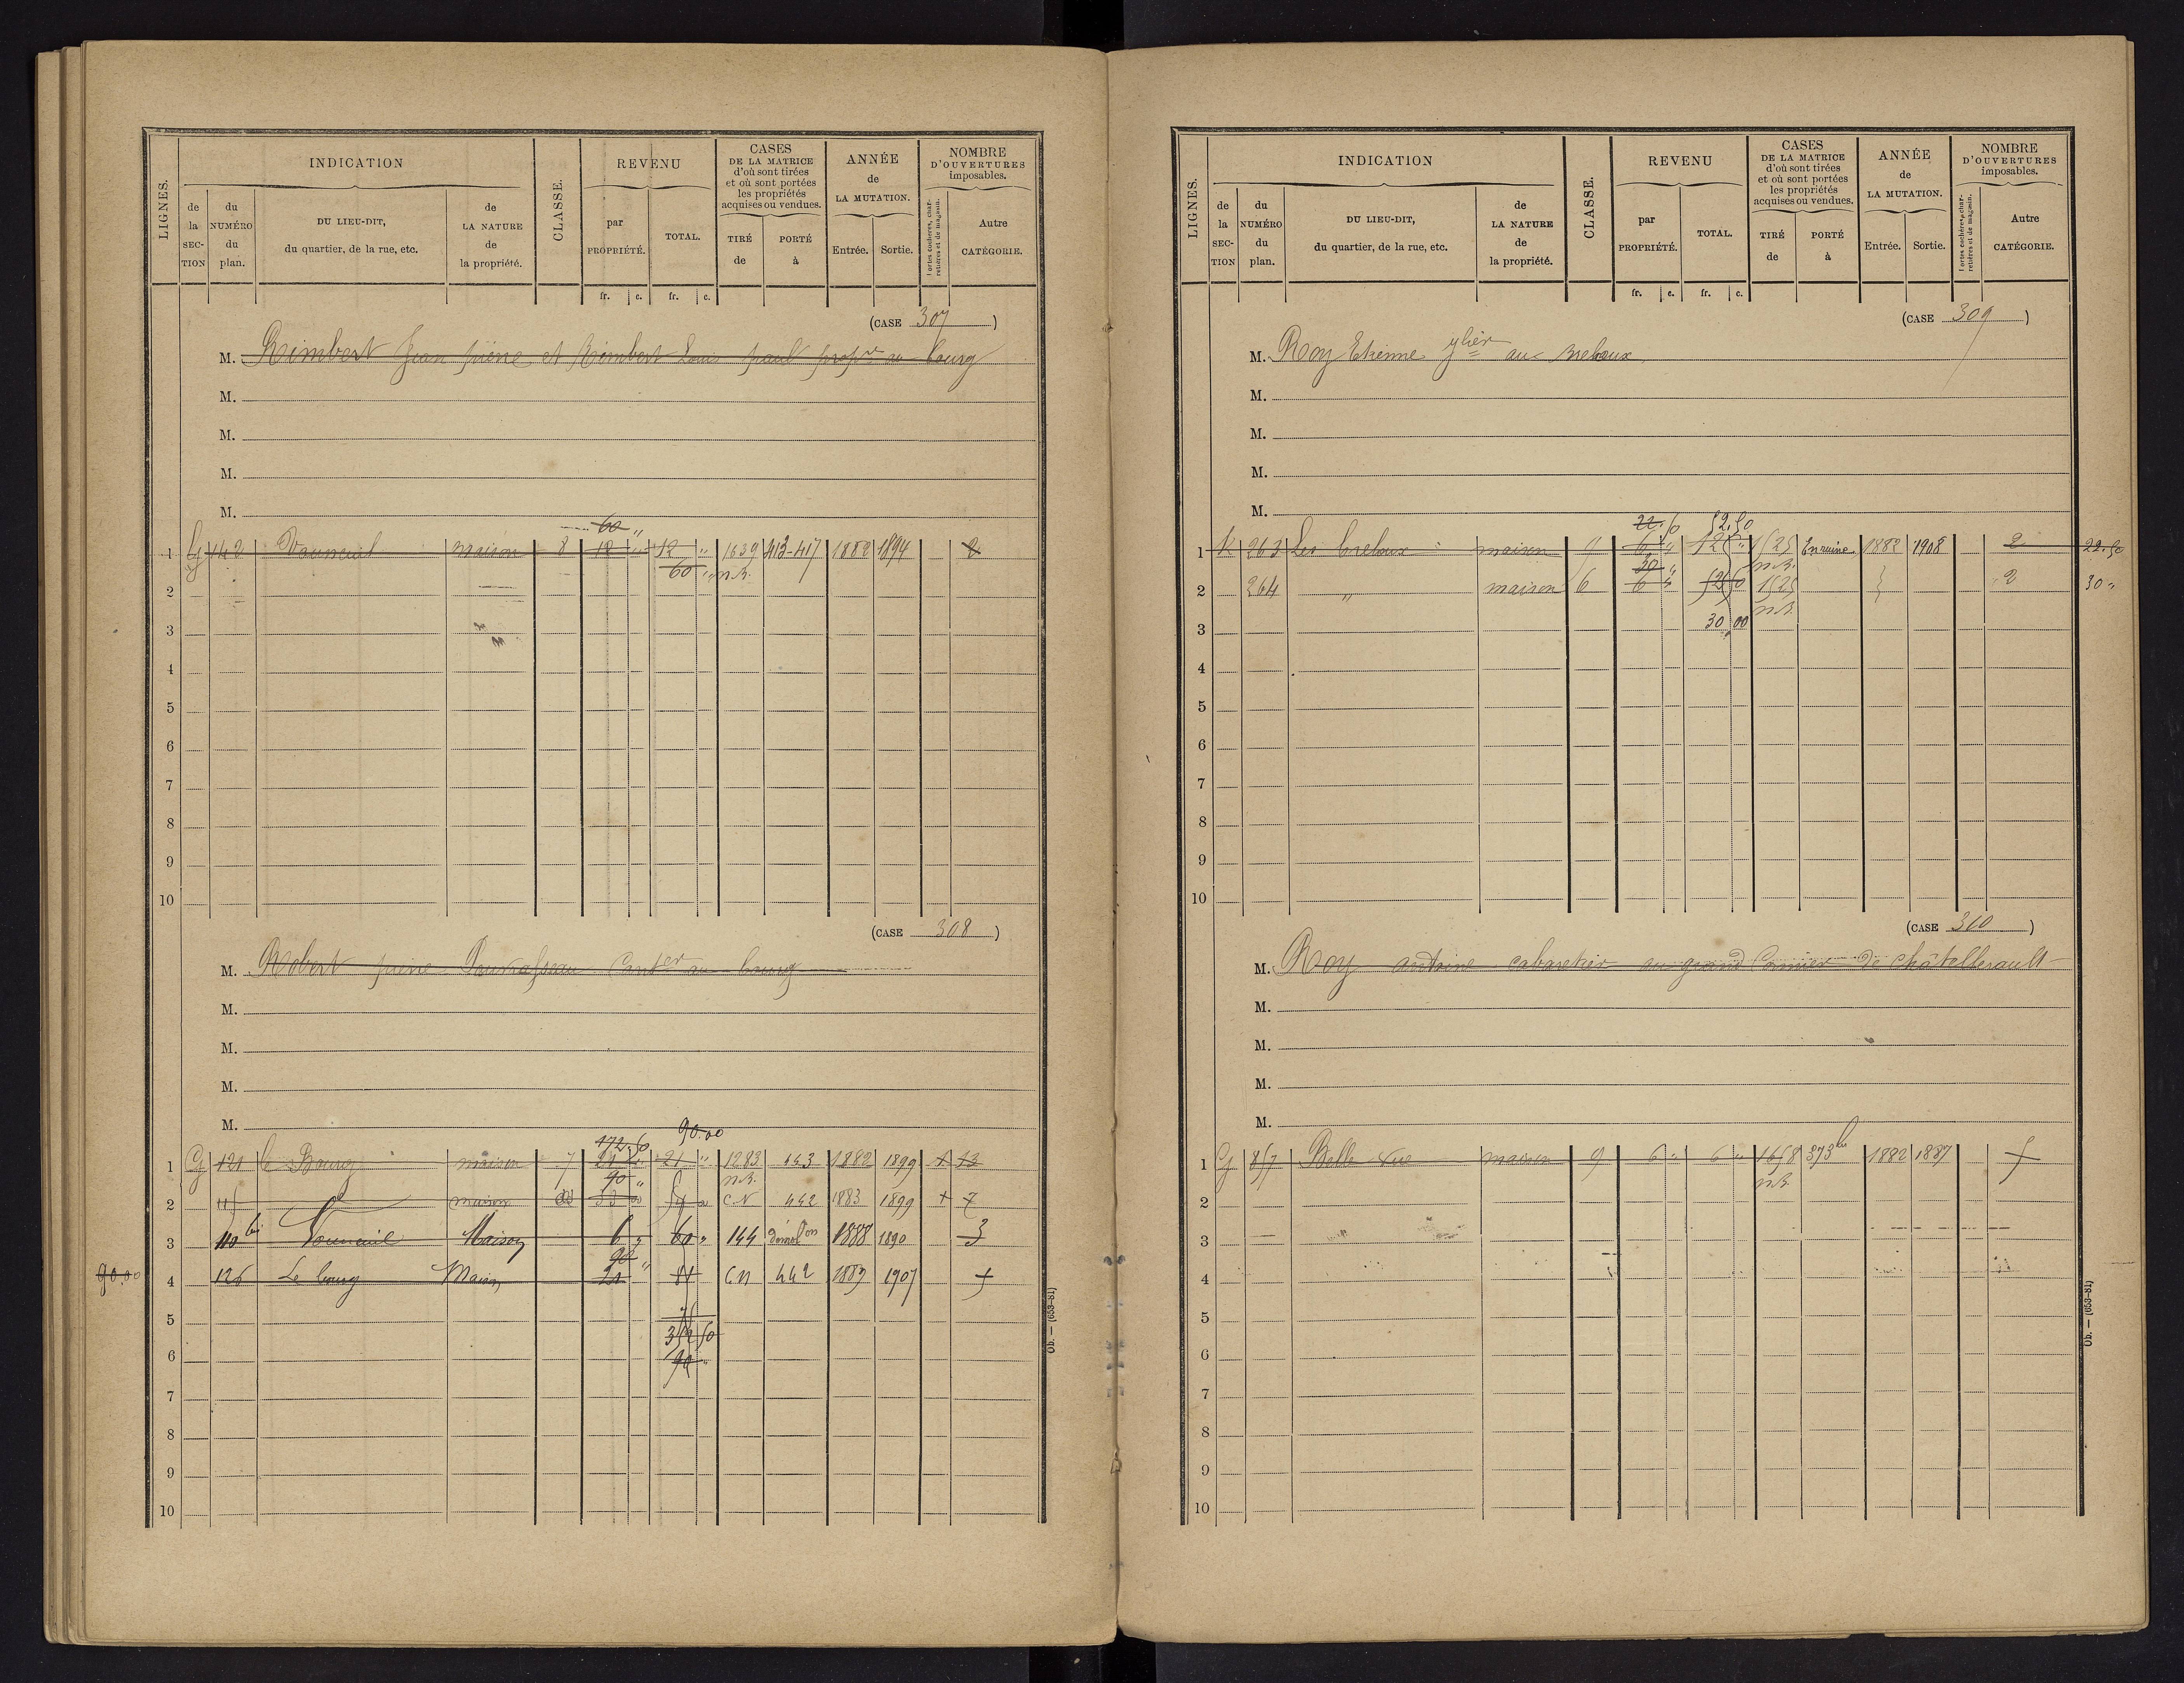 LIGNES.
INDICATION
de la SEC-TION
du NUMÉRO du plan.
DU LIEU-DIT, du quartier, de la rue, etc.
de LA NATURE de la propriété.
CLASSE.
REVENU
par PROPRIÉTÉ.
TOTAL.
fr. c. fr. c.
CASES DE LA MATRICE d'où sont tirées et où sont portées les propriétés acquises ou vendues.
TIRÉ de
PORTÉ à
ANNÉE de LA MUTATION.
Entrée. Sortie.
NOMBRE D'OUVERTURES imposables.
Portes cochères, charretières et de magasin.
Autre CATÉGORIE.
(CASE 307)
M. Rimbert Jean pierre et Rimbert Louis paul propre au bourg
M.
M.
M.
M.
60 "
1 G 142 maison 8 12 " 12 " 1639 413-417 1882 1894 2
60 " n.R.
2
3
4
5
6
7
8
9
10
(CASE 308)
M. Robert pierre au bourg
M.
M.
M.
M.
172.50 90.00
1 G 121 le Bourg maison 7 21 " 21 " 1283 443 1882 1899 + 13
90 " n.R.
2 maison CN 442 1883 1899 + 7
3 110 bis Maison 6 " 60 " 144 démolon 1888 1890 3
90 "
90.00 4 126 Le bourg Maison 21 81 CN 442 1889 1907
5
352 50
6 90 "
7
8
9
10
Ob. — (653-81)
LIGNES.
INDICATION
de la SEC-TION
du NUMÉRO du plan.
DU LIEU-DIT, du quartier, de la rue, etc.
de LA NATURE de la propriété.
CLASSE.
REVENU
par PROPRIÉTÉ.
TOTAL.
fr. c. fr. c.
CASES DE LA MATRICE d'où sont tirées et où sont portées les propriétés acquises ou vendues.
TIRÉ de
PORTÉ à
ANNÉE de LA MUTATION.
Entrée. Sortie.
NOMBRE D'OUVERTURES imposables.
Portes cochères, charretières et de magasin.
Autre CATÉGORIE.
(CASE 309)
M. Roy Etienne jlier aux breboux
M.
M.
M.
M.
22.50 52.50
1 K 263 Les breboux maison 6 " 12 " 1525 En ruine 1882 1908 2 22.50
30 " n.R.
2 264 " maison 6 6 " 52 50 1525 2 30 "
n.R.
3 30 00
4
5
6
7
8
9
10
(CASE 310)
M. Roy antoine cabaretier au grand de Châtellerault
M.
M.
M.
M.
1 G 857 Belle vue maison 9 6 " 6 " 1658 373 bis 1882 1887
n.R.
2
3
4
5
6
7
8
9
10
Ob. — (653-81)